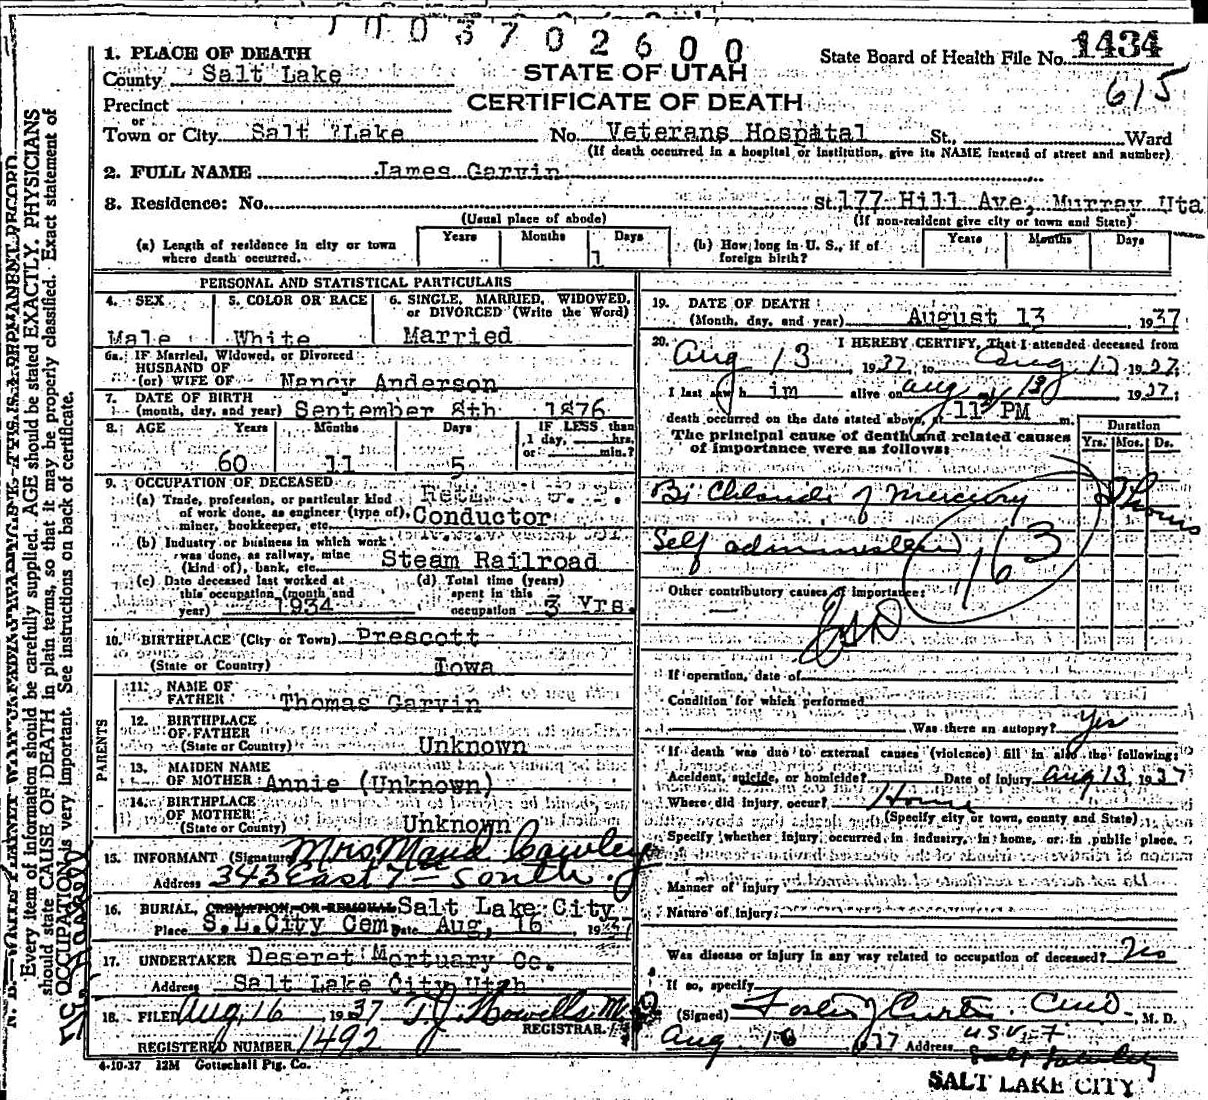 1003702600
1. PLACE OF DEATH
County Salt Lake
STATE OF UTAH
State Board of Health File No. 1434
615
Precinct
CERTIFICATE OF DEATH
or
Town or City Salt Lake No. Veterans Hospital St., Ward
(If death occurred in a hospital or institution, give its NAME instead of street and number)
2. FULL NAME James Garvin
3. Residence: No. St. 177 Hill Ave, Murray Uta
(Usual place of abode) (If non-resident give city or town and State)
(a) Length of residence in city or town where death occurred. Years Months Days 1
(b) How long in U. S., if of foreign birth? Years Months Days
PERSONAL AND STATISTICAL PARTICULARS
4. SEX Male
5. COLOR OR RACE White
6. SINGLE, MARRIED, WIDOWED, or DIVORCED (Write the Word) Married
6a. IF Married, Widowed, or Divorced
HUSBAND OF
(or) WIFE OF Nancy Anderson
7. DATE OF BIRTH
(month, day, and year) September 8th 1876
8. AGE Years Months Days IF LESS than
1 day, hrs.
or min.?
60 11 5
9. OCCUPATION OF DECEASED
(a) Trade, profession, or particular kind
of work done, as engineer (type of),
miner, bookkeeper, etc. Conductor
(b) Industry or business in which work
was done, as railway, mine
(kind of), bank, etc. Steam Railroad
(c) Date deceased last worked at
this occupation (month and
year) 1934
(d) Total time (years)
spent in this
occupation 3 Yrs.
10. BIRTHPLACE (City or Town) Prescott
(State or Country) Iowa
PARENTS
11. NAME OF
FATHER Thomas Garvin
12. BIRTHPLACE
OF FATHER
(State or Country) Unknown
13. MAIDEN NAME
OF MOTHER Annie (Unknown)
14. BIRTHPLACE
OF MOTHER
(State or County) Unknown
15. INFORMANT (Signature) Mrs Maud Cawley
Address 343 East 7 South
16. BURIAL, CREMATION OR REMOVAL Salt Lake City
Place S.L.City Cem Date Aug, 16 1937
17. UNDERTAKER Deseret Mortuary Co.
Address Salt Lake City Utah
18. FILED Aug, 16 1937 T.J. Howells M.D
REGISTRAR.
REGISTERED NUMBER 1492
4-10-37 12M Gottschall Ptg. Co.
19. DATE OF DEATH
(Month, day, and year) August 13 1937
20. I HEREBY CERTIFY, That I attended deceased from
Aug 13 1937, to Aug 13 1937;
I last saw h im alive on Aug 13 1937;
death occurred on the date stated above, at 11 PM m.
The principal cause of death and related causes
of importance were as follows:
Duration
Yrs. Mos. Ds.
Bi Chloride of mercury
Self administered
163
Other contributory causes of importance:
If operation, date of
Condition for which performed
Was there an autopsy? Yes
If death was due to external causes (violence) fill in also the following:
Accident, suicide, or homicide? Date of Injury Aug 13, 1937
Where did injury occur? Home
(Specify city or town, county and State)
Specify whether injury occurred in industry, in home, or in public place.
Manner of injury
Nature of injury
Was disease or injury in any way related to occupation of deceased? No
If so, specify
(Signed) Foster J Curtis M. D.
Aug 16 37 Address
SALT LAKE CITY
N. B.—WRITE PLAINLY WITH UNFADING INK—THIS IS A PERMANENT RECORD.
Every item of information should be carefully supplied. AGE should be stated EXACTLY. PHYSICIANS
should state CAUSE OF DEATH in plain terms, so that it may be properly classified. Exact statement of
OCCUPATION is very important. See instructions on back of certificate.